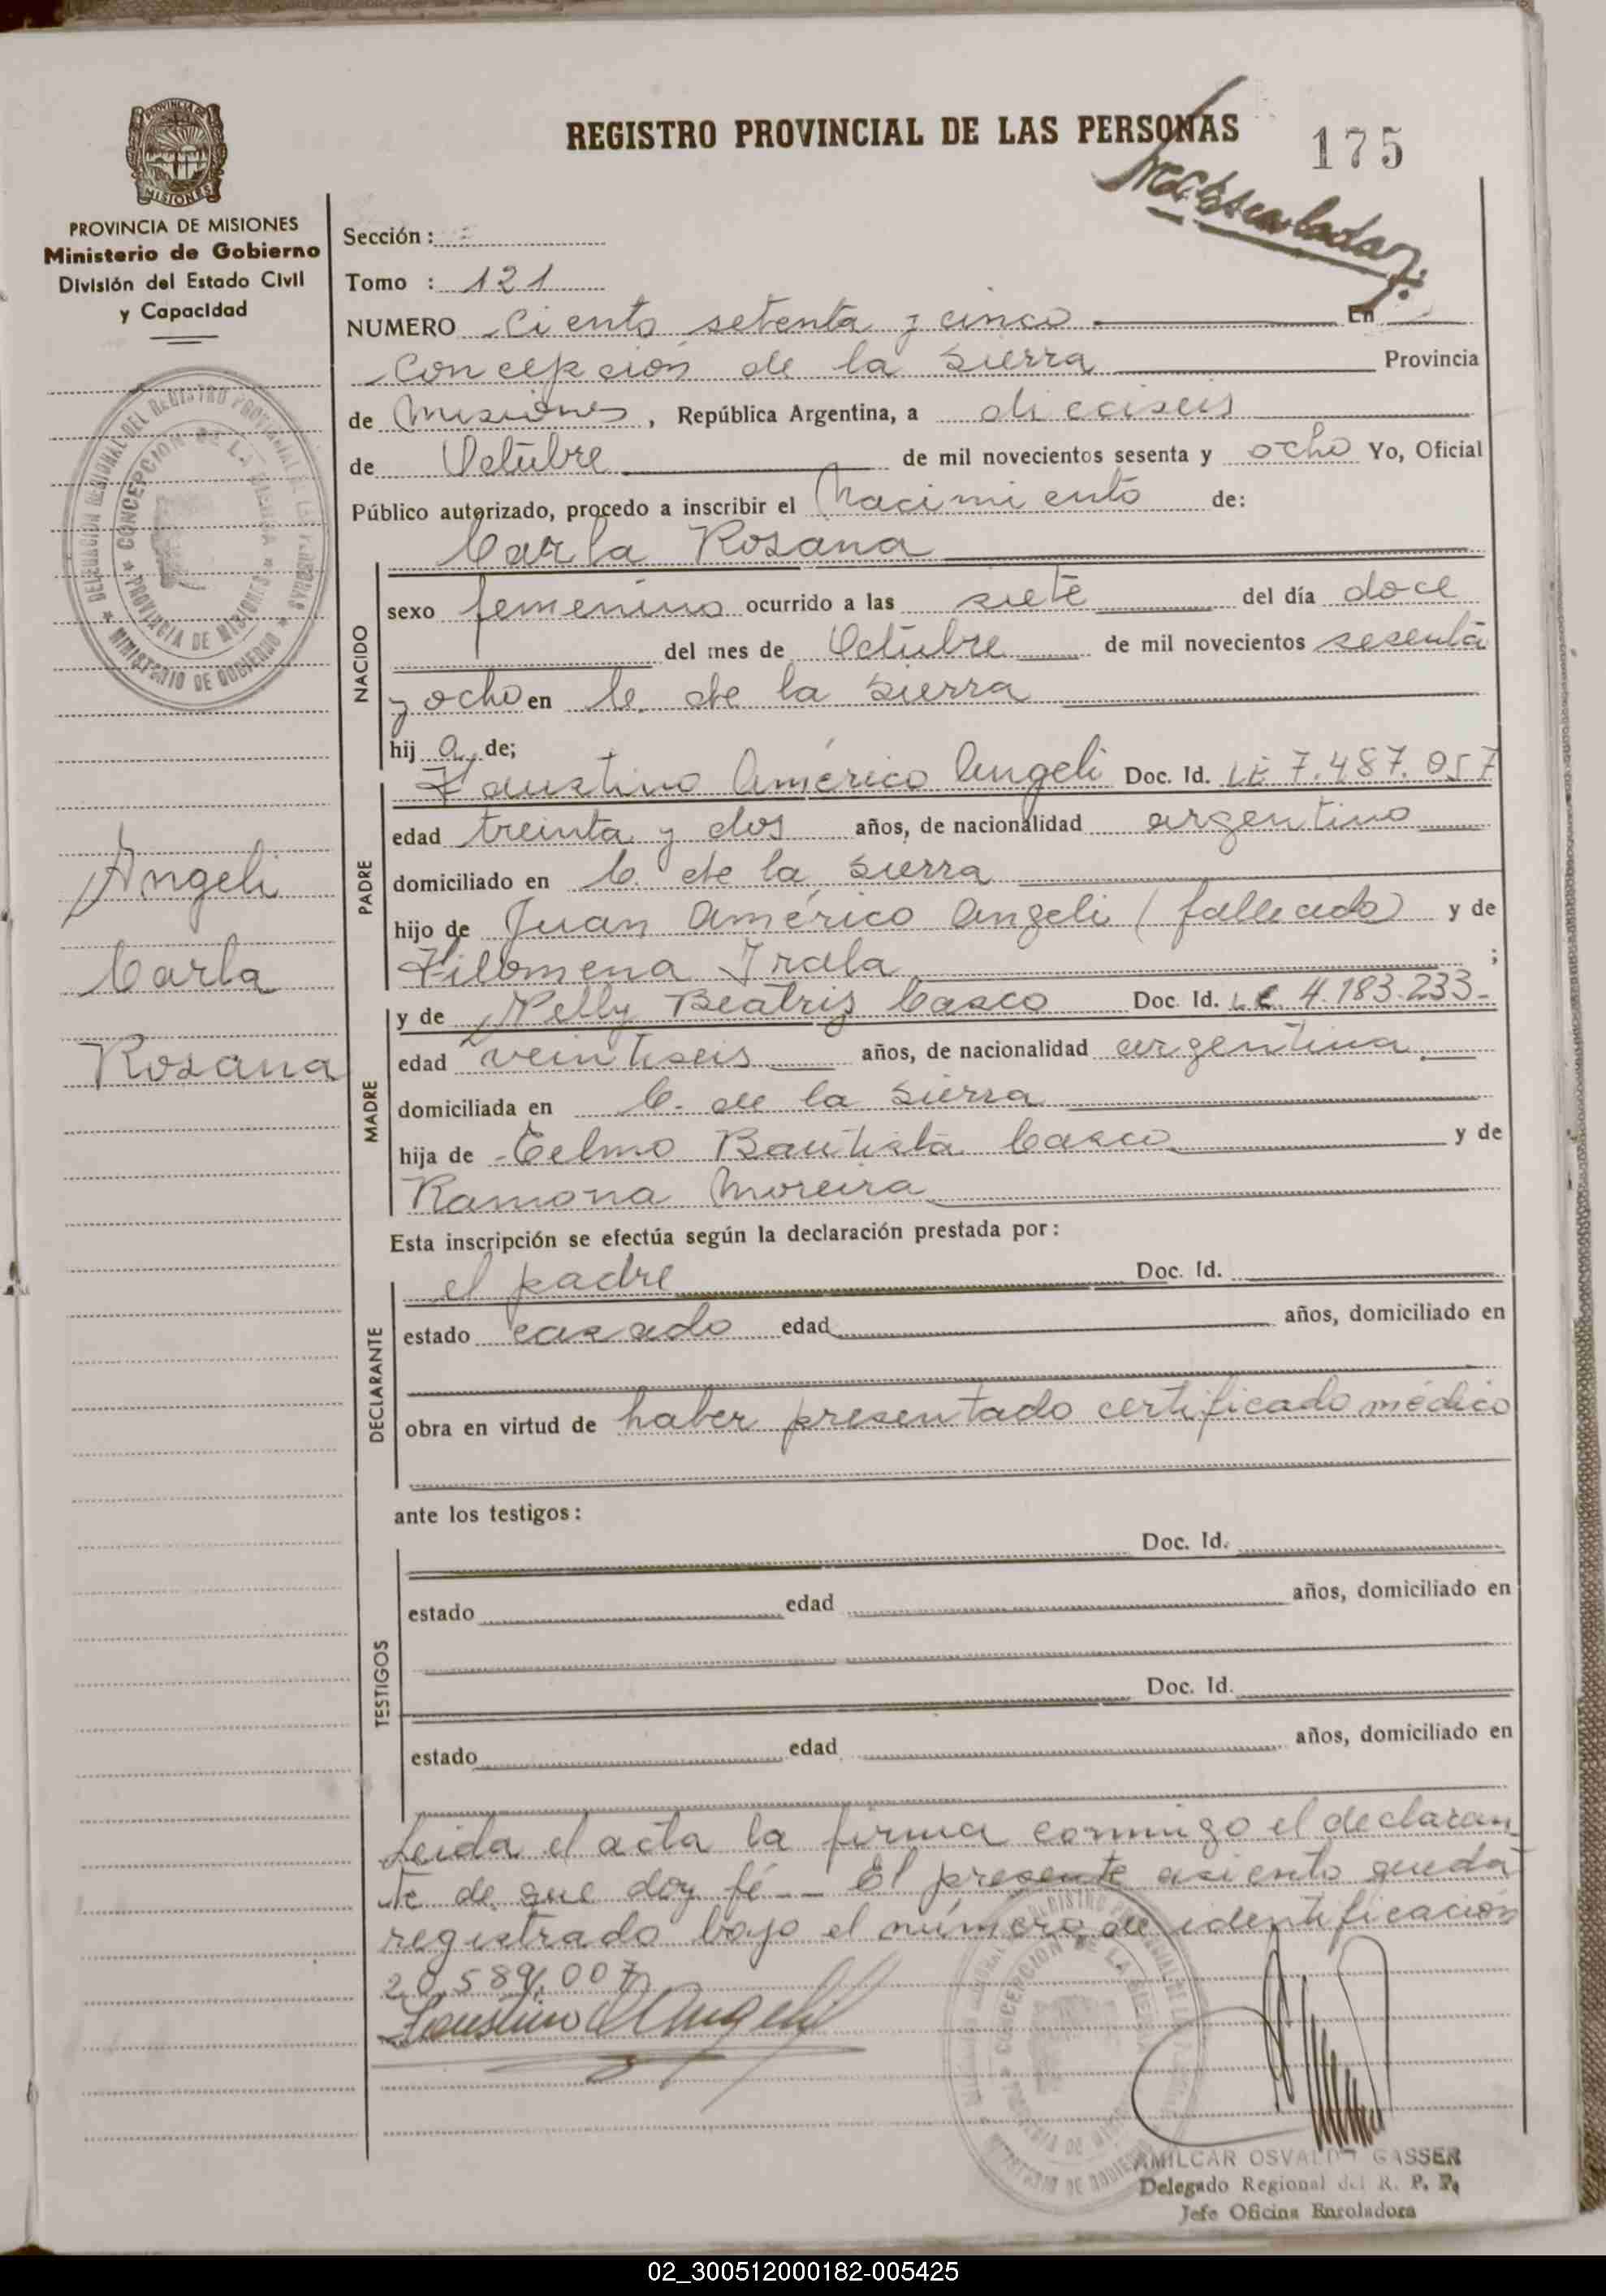 REGISTRO PROVINCIAL DE LAS PERSONAS
175
PROVINCIA DE MISIONES
Ministerio de Gobierno
División del Estado Civil
y Capacidad
Sección :
Tomo : 121
NUMERO Ciento setenta y cinco En
Concepción de la Sierra Provincia
de Misiones, República Argentina, a dieciseis
de Octubre de mil novecientos sesenta y ocho Yo, Oficial
Público autorizado, procedo a inscribir el Nacimiento de:
Carla Rosana
NACIDO
sexo femenino ocurrido a las siete del día doce
del mes de Octubre de mil novecientos sesenta
y ocho en C. de la Sierra
hij a de;
PADRE
Faustino Américo Angeli Doc. Id. LE 7.487.057
edad treinta y dos años, de nacionalidad argentino
domiciliado en C. de la Sierra
hijo de Juan Américo Angeli (fallecido) y de
Filomena Irala ;
MADRE
y de Nelly Beatris Casco Doc. Id. LC 4.183.233-
edad veintiseis años, de nacionalidad argentina
domiciliada en C. de la Sierra
hija de Celmo Bautista Casco y de
Ramona Moreira
Angeli
Carla
Rosana
Esta inscripción se efectúa según la declaración prestada por :
DECLARANTE
el padre Doc. Id.
estado casado edad años, domiciliado en
obra en virtud de haber presentado certificado médico
ante los testigos :
TESTIGOS
Doc. Id.
estado edad años, domiciliado en
Doc. Id.
estado edad años, domiciliado en
Leida el acta la firma conmigo el declaran
te de que doy fé-- El presente asiento queda
registrado bajo el número de identificación
20.589.007
Faustino A Angeli
AMILCAR OSVALDO GASSER
Delegado Regional del R. P. P.
Jefe Oficina Enroladora
DELEGACION REGIONAL DEL REGISTRO PROVINCIAL DE LAS PERSONAS
CONCEPCION DE LA SIERRA
PROVINCIA DE MISIONES
MINISTERIO DE GOBIERNO
02_300512000182-005425